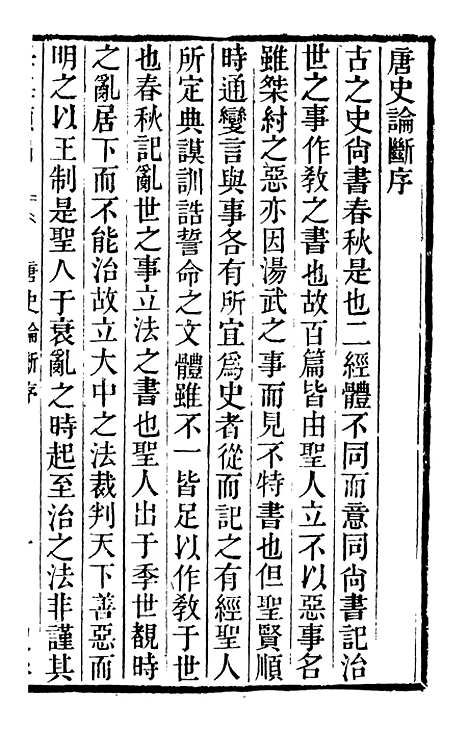 唐史論斷序
古之史尚書春秋是也二經體不同而意同尚書記治
世之事作敎之書也故百篇皆由聖人立不以惡事名
雖桀紂之惡亦因湯武之事而見不特書也但聖賢順
時通變言與事各有所宜爲史者從而記之有經聖人
所定典謨訓誥誓命之文體雖不一皆足以作敎于世
也春秋記亂世之事立法之書也聖人出于季世覩時
之亂居下而不能治故立大中之法裁判天下善惡而
明之以王制是聖人于衰亂之時起至治之法非謹其
唐史論斷序
一